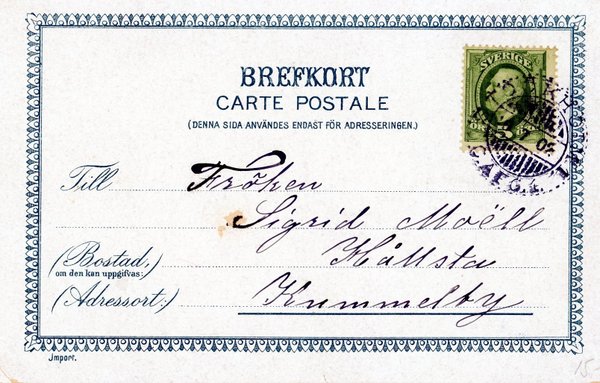 BREFKORT
CARTE POSTALE
(DENNA SIDA ANVÄNDES ENDAST FÖR ADRESSERINGEN.)
SVERIGE
5
Till Fröken
Sigrid Moëll
(Bostad, Hållsta
om den kan uppgifvas:)
(Adressort:) Kummelby
Import.
15-